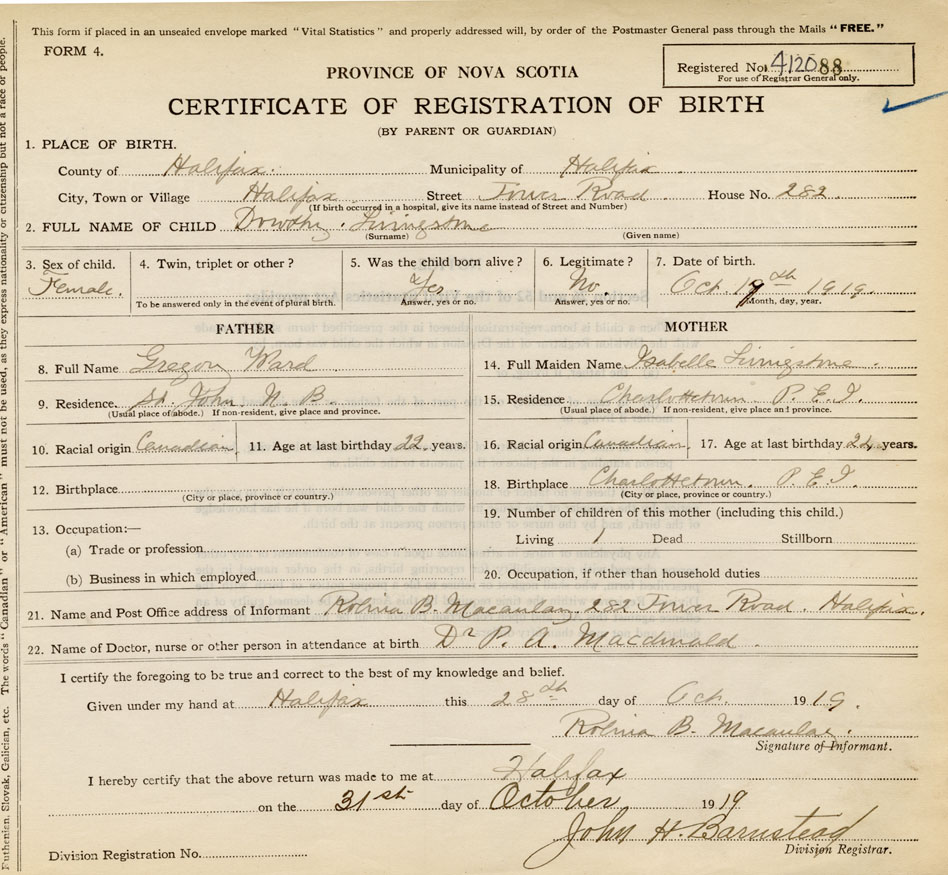 This form if placed in an unsealed envelope marked "Vital Statistics" and properly addressed will, by order of the Postmaster General pass through the Mails "FREE."
FORM 4.
Registered No. 412088
For use of Registrar General only.
PROVINCE OF NOVA SCOTIA
CERTIFICATE OF REGISTRATION OF BIRTH
(BY PARENT OR GUARDIAN)
1. PLACE OF BIRTH.
County of Halifax. Municipality of Halifax
City, Town or Village Halifax Street Tower Road House No. 282
(If birth occurred in a hospital, give its name instead of Street and Number)
2. FULL NAME OF CHILD Dorothy Livingstone
(Surname) (Given name)
3. Sex of child. 4. Twin, triplet or other? 5. Was the child born alive? 6. Legitimate? 7. Date of birth.
Female. Yes. No. Oct. 19th 1919.
To be answered only in the event of plural birth. Answer, yes or no. Answer, yes or no. Month, day, year.
FATHER MOTHER
8. Full Name Gregory Ward 14. Full Maiden Name Isabelle Livingstone
9. Residence. St. John N. B. 15. Residence. Charlottetown P. E. I.
(Usual place of abode.) If non-resident, give place and province. (Usual place of abode.) If non-resident, give place and province.
10. Racial origin Canadian 11. Age at last birthday 22 years. 16. Racial origin Canadian 17. Age at last birthday years.
12. Birthplace 18. Birthplace Charlottetown. P. E. I.
(City or place, province or country.) (City or place, province or country.)
13. Occupation:— 19. Number of children of this mother (including this child.)
(a) Trade or profession Living 1 Dead Stillborn
(b) Business in which employed 20. Occupation, if other than household duties
21. Name and Post Office address of Informant Rolina B. Macaulay. 282 Tower Road. Halifax.
22. Name of Doctor, nurse or other person in attendance at birth Dr P. A. Macdonald.
I certify the foregoing to be true and correct to the best of my knowledge and belief.
Given under my hand at Halifax this 28th day of Oct. 1919.
Rolina B. Macaulay.
Signature of Informant.
I hereby certify that the above return was made to me at Halifax
on the 31st day of October 1919
John H. Barnstead
Division Registrar.
Division Registration No.
Ruthenian, Slovak, Galician, etc. The words "Canadian" or "American" must not be used, as they express nationality or citizenship but not a race or people.